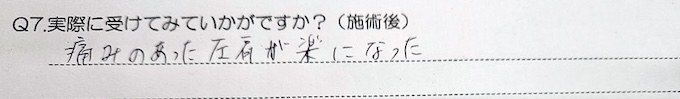 Q7.実際に受けてみていかがですか？（施術後）
痛みのあった左肩が楽になった